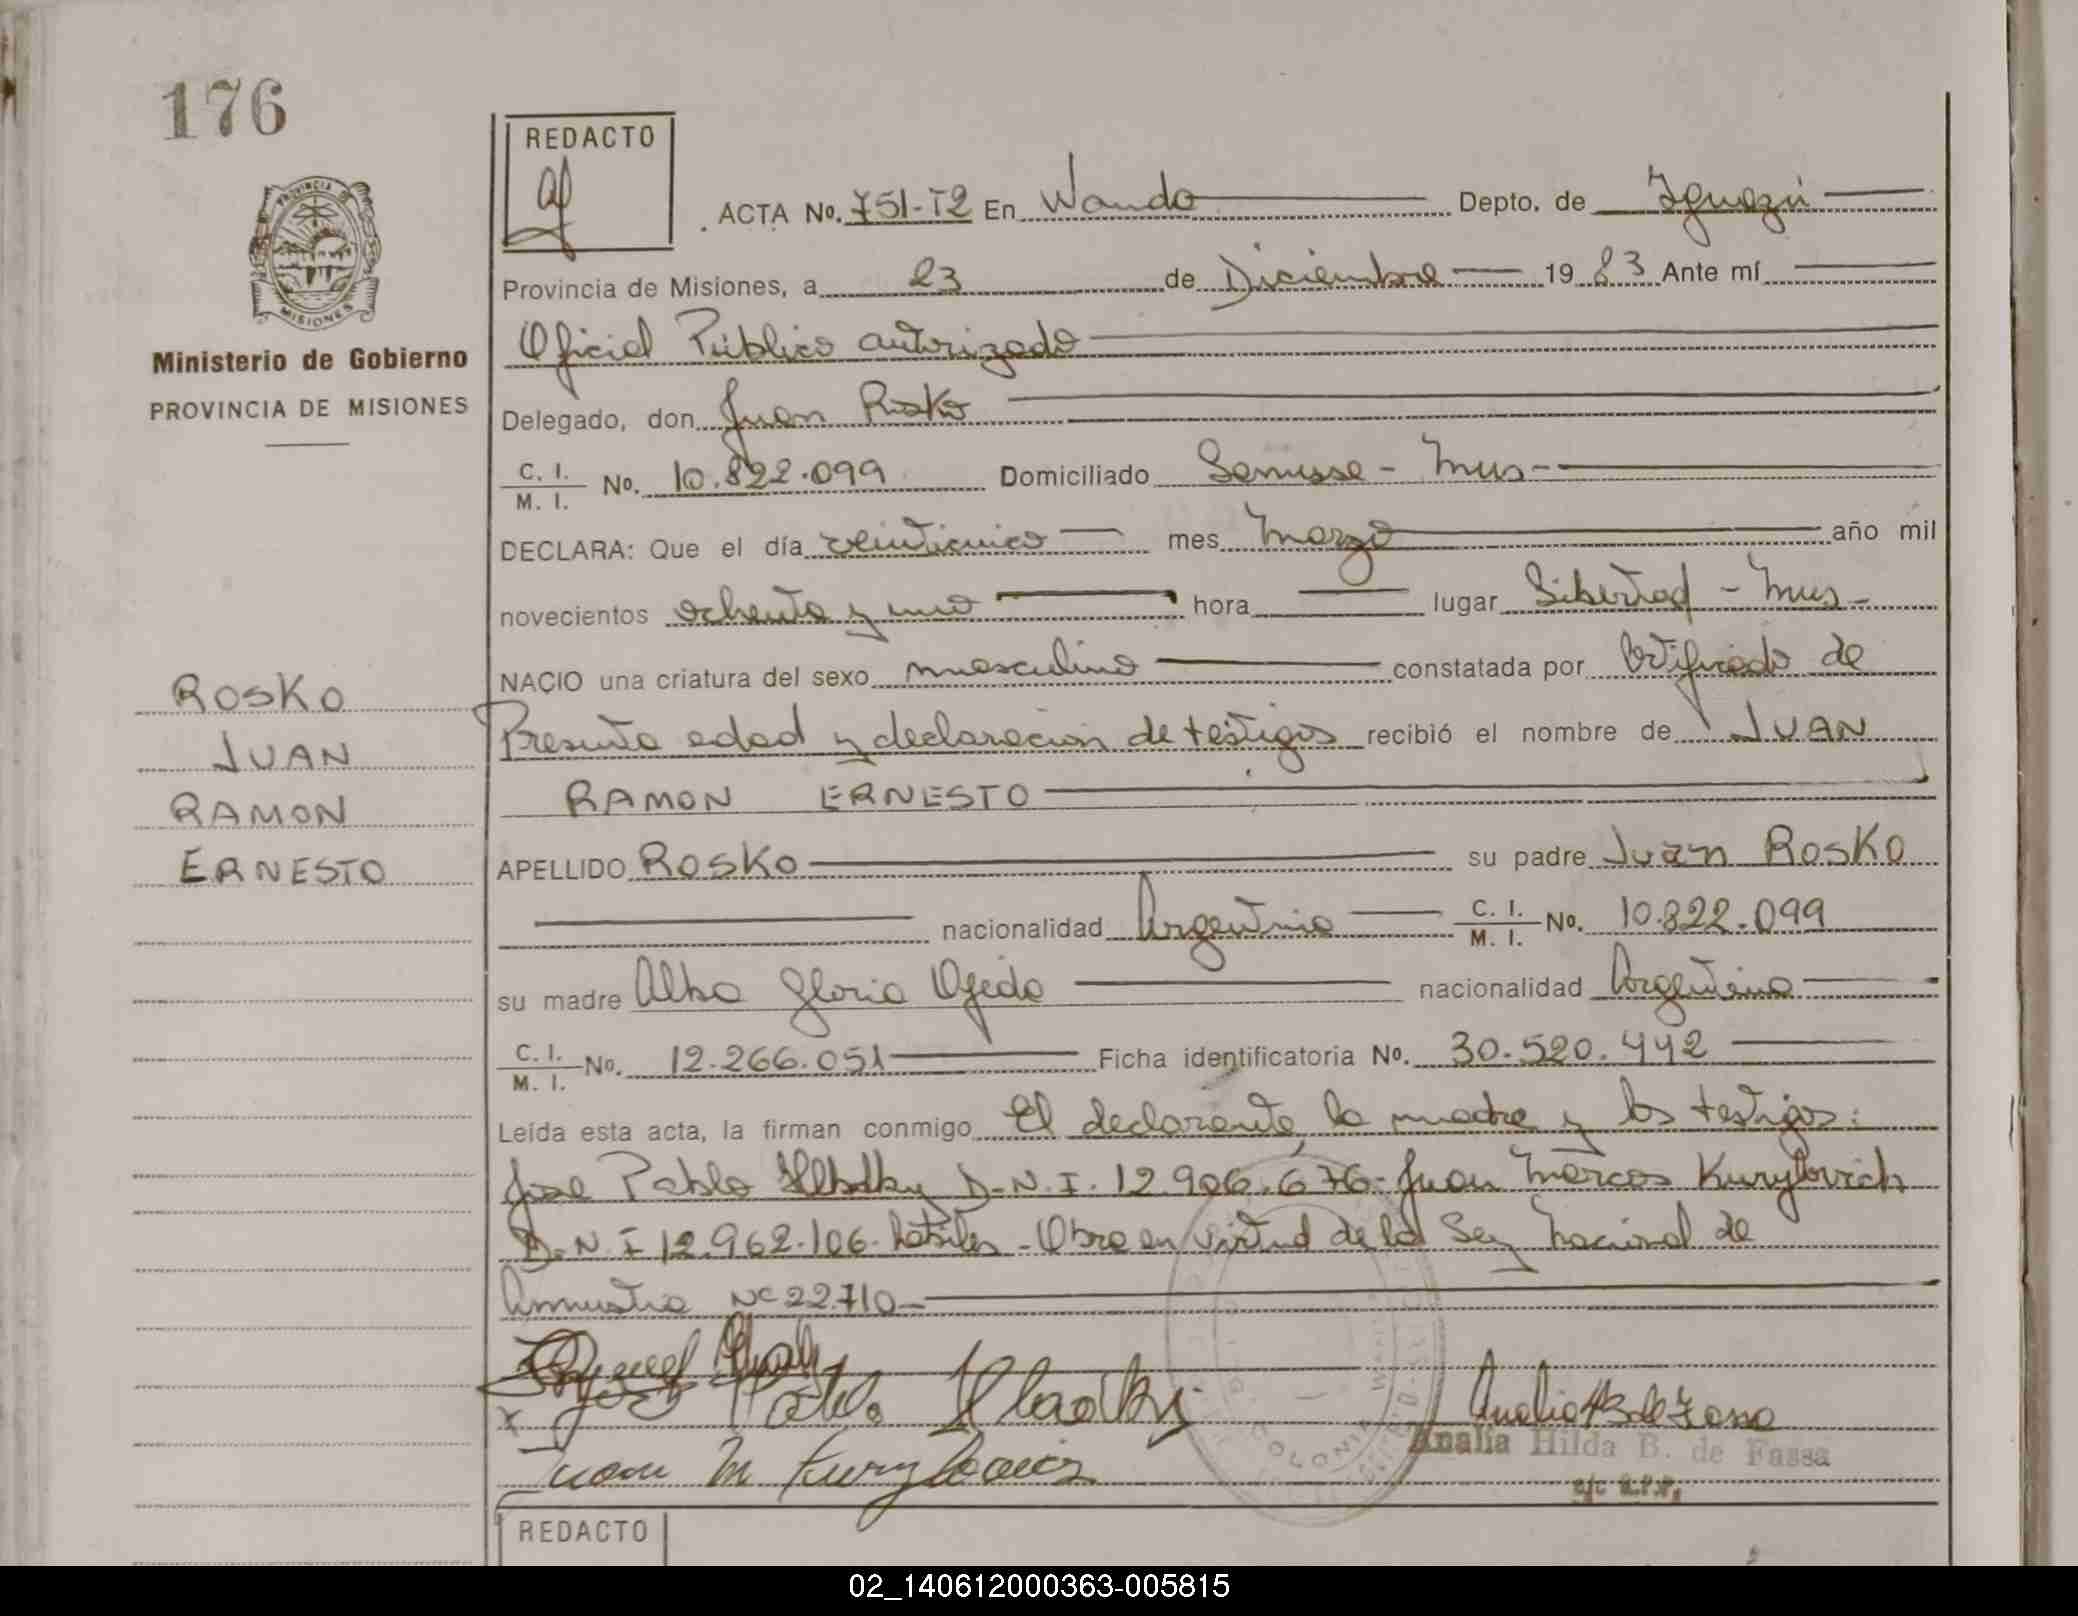 176
REDACTO
PROVINCIA DE
MISIONES
Ministerio de Gobierno
PROVINCIA DE MISIONES
ACTA No. 751-T2 En Wanda Depto. de Iguazú
Provincia de Misiones, a 23 de Diciembre 1983 Ante mí
Oficial Público autorizado
Delegado, don Juan Rosko
C. I.
M. I. No. 10.822.099 Domiciliado - Mnes -
DECLARA: Que el día veinticinco mes Marzo año mil
novecientos ochenta y uno hora lugar Libertad - Mnes -
NACIO una criatura del sexo masculino constatada por Certificado de
Presunta edad y declaracion de testigos recibió el nombre de JUAN
RAMON ERNESTO
ROSKO
JUAN
RAMON
ERNESTO
APELLIDO ROSKO su padre Juan ROSKO
nacionalidad Argentina C. I.
M. I. No. 10.822.099
su madre Alba Gloria Ojeda nacionalidad Argentina
C. I.
M. I. No. 12.266.051 Ficha identificatoria No. 30.520.442
Leída esta acta, la firman conmigo El declarante, la madre y los testigos:
Jose Pablo D.N.I. 12.906.676- Juan Marcos Kurylovich
D.N.I 12.962.106- habiles - Obra en virtud de la Ley Nacional de
Amnistia Nº 22.710-
Pablo
Juan M
COLONIA WANDA
Analia H B de Fassa
Analia Hilda B. de Fassa
REDACTO
02_140612000363-005815